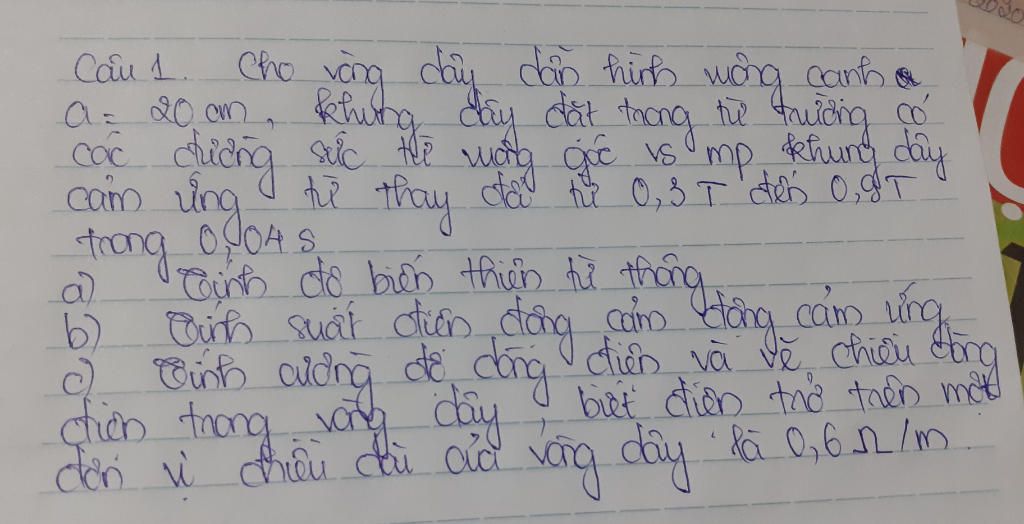 Câu 1. Cho vòng dây dẫn hình vuông cạnh
a = 20 cm, khung dây đặt trong từ trường có
các đường sức từ vuông góc vs mp khung dây
cảm ứng từ thay đổi từ 0,3 T đến 0,8T
trong 0,04 s
a) Tính độ biến thiên từ thông
b) Tính suất điện động cảm động cảm ứng
c) Tính cường độ dòng điện và vẽ chiều dòng
điện trong vòng dây, biết điện trở trên một
đơn vị chiều dài của vòng dây là 0,6 Ω/m.